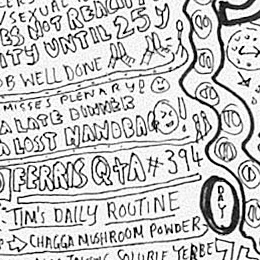 /SEXUAL
ES NOT REALLY
ITY UNTIL 25 Y
OB WELL DONE
MISSES PLENARY!
A LATE DINNER
A LOST HANDBAG!
FERRIS Q+A #394
TIM'S DAILY ROUTINE
→ CHAGGA MUSHROOM POWDER
SOLUBLE YERBE
DAY